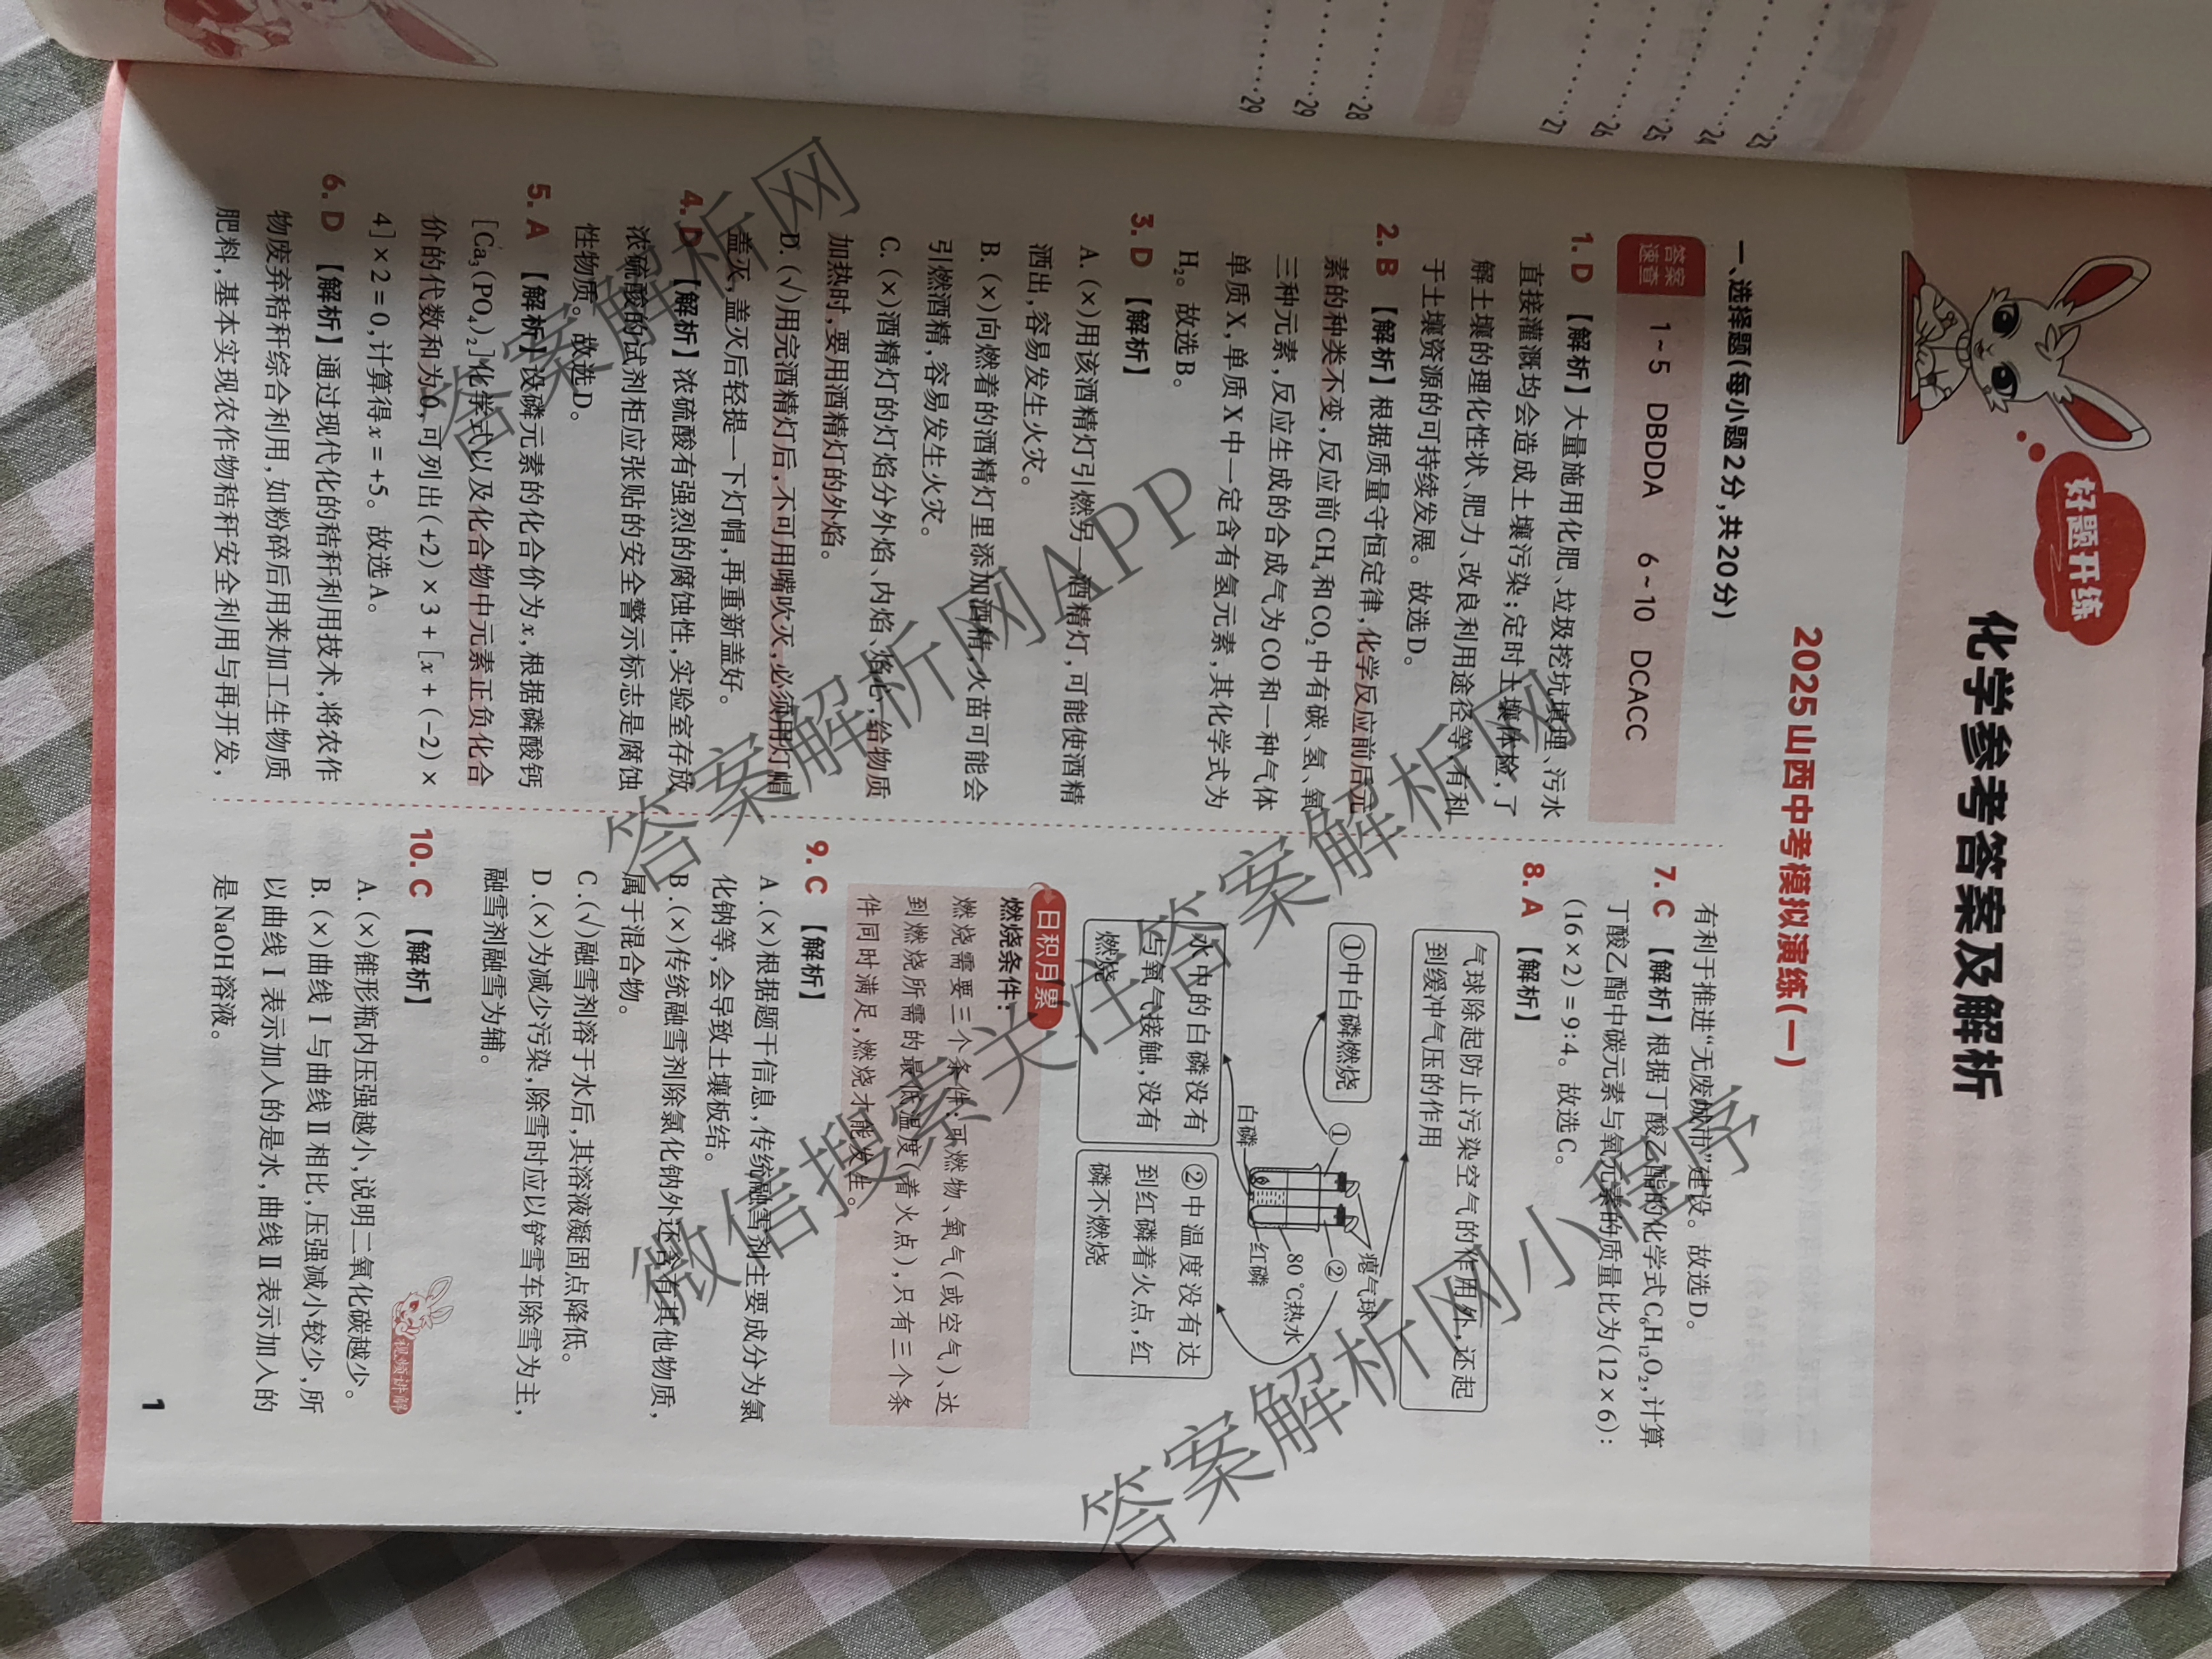 好题开练
化学参考答案及解析
2025山西中考模拟演练(一)
一、选择题(每小题2分,共20分)
答案
速查
1~5 DBDDA 6~10 DCACC
1. D 【解析】大量施用化肥、垃圾挖坑填埋、污水
直接灌溉均会造成土壤污染;定时土壤体检,了
解土壤的理化性状、肥力、改良利用途径等,有利
于土壤资源的可持续发展。故选D。
2. B 【解析】根据质量守恒定律,化学反应前后元
素的种类不变,反应前CH₄和CO₂中有碳、氢、氧
三种元素,反应生成的合成气为CO和一种气体
单质X,单质X中一定含有氢元素,其化学式为
H₂。故选B。
3. D 【解析】
A. (×)用该酒精灯引燃另一酒精灯,可能使酒精
洒出,容易发生火灾。
B. (×)向燃着的酒精灯里添加酒精,火苗可能会
引燃酒精,容易发生火灾。
C. (×)酒精灯的灯焰分外焰、内焰、焰心,给物质
加热时,要用酒精灯的外焰。
D. (√)用完酒精灯后,不可用嘴吹灭,必须用灯帽
盖灭,盖灭后轻提一下灯帽,再重新盖好。
4. D 【解析】浓硫酸有强烈的腐蚀性,实验室存放
浓硫酸的试剂柜应张贴的安全警示标志是腐蚀
性物质。故选D。
5. A 【解析】设磷元素的化合价为x,根据磷酸钙
[Ca₃(PO₄)₂]化学式以及化合物中元素正负化合
价的代数和为0,可列出(+2)×3+[x+(-2)×
4]×2=0,计算得x=+5。故选A。
6. D 【解析】通过现代化的秸秆利用技术,将农作
物废弃秸秆综合利用,如粉碎后用来加工生物质
肥料,基本实现农作物秸秆安全利用与再开发,
有利于推进“无废城市”建设。故选D。
7. C 【解析】根据丁酸乙酯的化学式C₆H₁₂O₂,计算
丁酸乙酯中碳元素与氧元素的质量比为(12×6):
(16×2)=9:4。故选C。
8. A 【解析】
气球除起防止污染空气的作用外,还起
到缓冲气压的作用
①中白磷燃烧
①
②
瘪气球
80 ℃热水
白磷
红磷
水中的白磷没有
与氧气接触,没有
燃烧
②中温度没有达
到红磷着火点,红
磷不燃烧
日积月累
燃烧条件:
燃烧需要三个条件:可燃物、氧气(或空气)、达
到燃烧所需的最低温度(着火点),只有三个条
件同时满足,燃烧才能发生。
9. C 【解析】
A. (×)根据题干信息,传统融雪剂主要成分为氯
化钠等,会导致土壤板结。
B. (×)传统融雪剂除氯化钠外还含有其他物质,
属于混合物。
C. (√)融雪剂溶于水后,其溶液凝固点降低。
D. (×)为减少污染,除雪时应以铲雪车除雪为主,
融雪剂融雪为辅。
10. C 【解析】
视频讲解
A. (×)锥形瓶内压强越小,说明二氧化碳越少。
B. (×)曲线Ⅰ与曲线Ⅱ相比,压强减小较少,所
以曲线Ⅰ表示加入的是水,曲线Ⅱ表示加入的
是NaOH溶液。
1
23
24
25
26
27
28
29
29
答案解析网
答案解析网APP
答案解析网
微信搜索关注答案解析网
答案解析网小程序